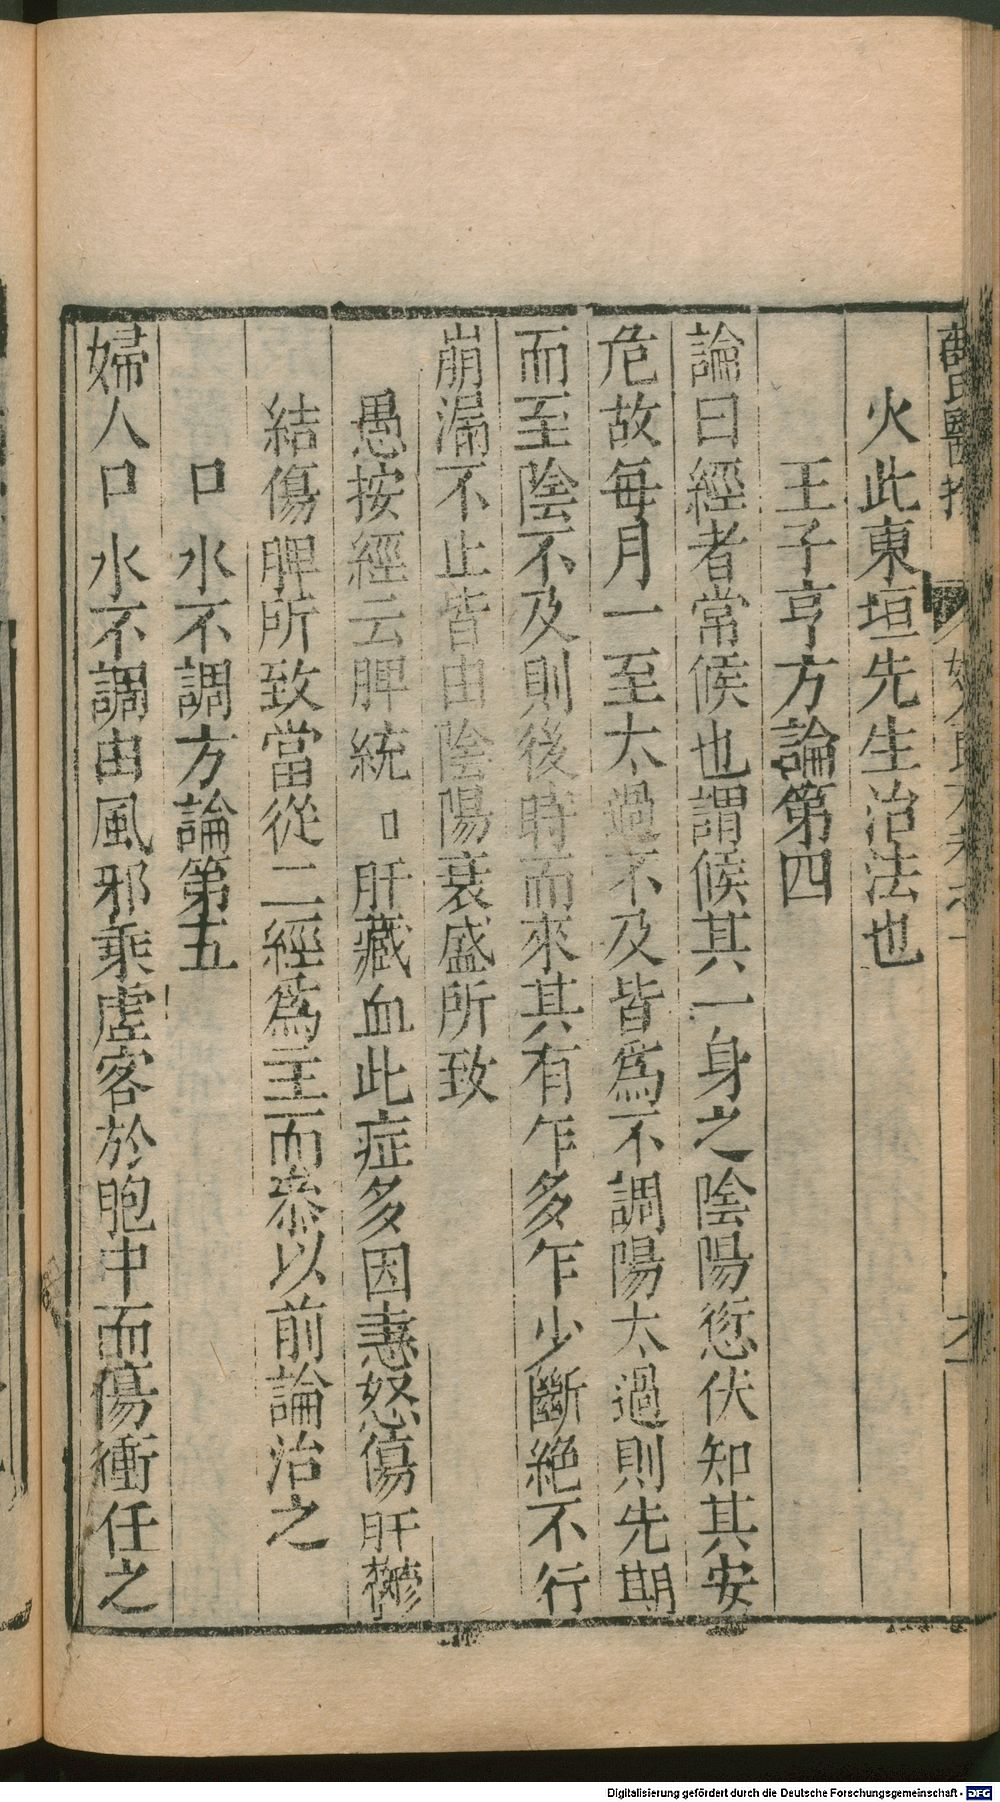 火此東垣先生治法也
王子亨方論第四
論曰經者常候也謂候其一身之陰陽愆伏知其安
危故每月一至太過不及皆爲不調陽太過則先期
而至陰不及則後時而來其有乍多乍少斷絶不行
崩漏不止皆由陰陽衰盛所致
愚按經云脾統口肝藏血此症多因恚怒傷肝鬱
結傷脾所致當從二經爲主而叅以前論治之
口水不調方論第五
婦人口水不調由風邪乘虛客於胞中而傷衝任之
Digitalisierung gefördert durch die Deutsche Forschungsgemeinschaft - DFG